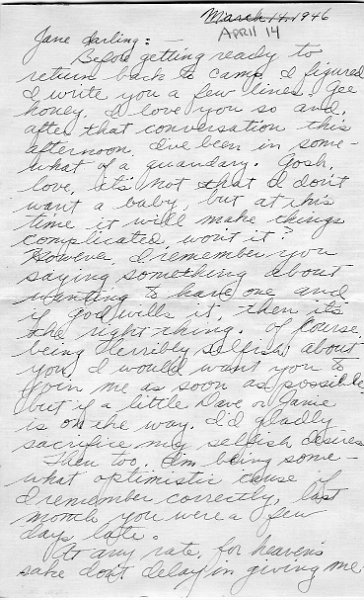 March 14, 1946
APRIL 14
Jane darling:-
Before getting ready to
return back to camp, I figured
I write you a few lines. Gee
honey, I love you so and,
after that conversation this
afternoon, I've been in some-
what of a quandary. Gosh,
love, it's not that I don't
want a baby, but at this
time it will make things
complicated, won't it?
However, I remember you
saying something about
wanting to have one and
if God wills it, then it's
the right thing. Of course
being terribly selfish about
you, I would want you to
join me as soon as possible
but if a little Dave or Janie
is on the way, I'd gladly
sacrifice my selfish desires.
Then too, I'm being some-
what optimistic cause if
I remember correctly, last
month you were a few
days late.
At any rate, for heaven's
sake don't delay in giving me